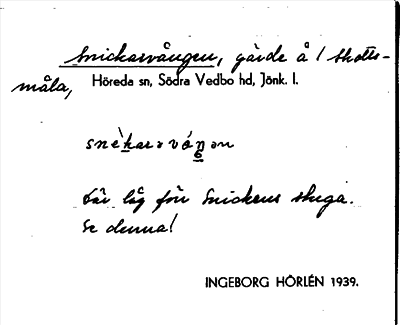 Snickarvången, gärde å 1 Skotts-
måla, Höreda sn, Södra Vedbo hd, Jönk. l.
Där låg förr Snickens stuga.
Se denna!
INGEBORG HÖRLÉN 1939.